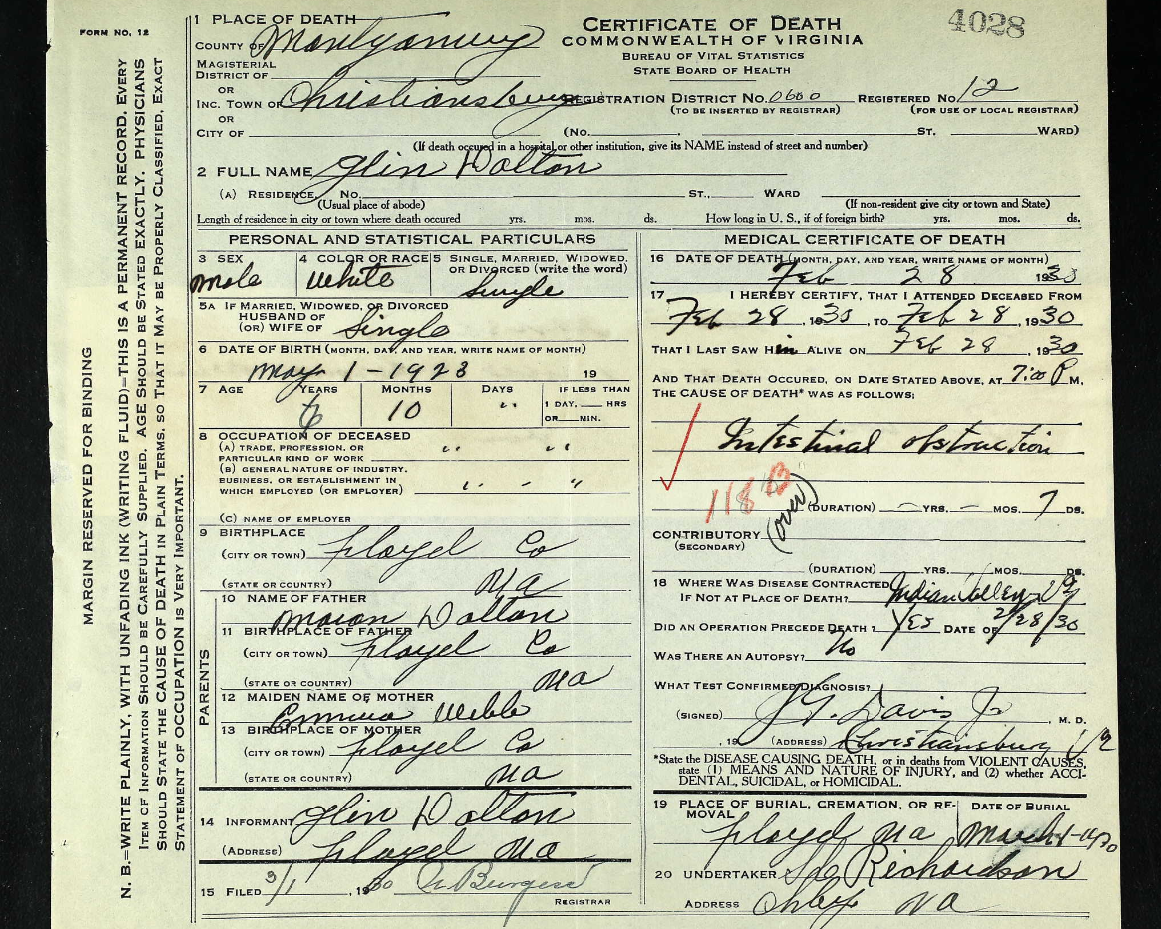 FORM NO. 12
MARGIN RESERVED FOR BINDING
N. B.=WRITE PLAINLY, WITH UNFADING INK (WRITING FLUID)=THIS IS A PERMANENT RECORD. EVERY
ITEM OF INFORMATION SHOULD BE CAREFULLY SUPPLIED. AGE SHOULD BE STATED EXACTLY. PHYSICIANS
SHOULD STATE THE CAUSE OF DEATH IN PLAIN TERMS, SO THAT IT MAY BE PROPERLY CLASSIFIED. EXACT
STATEMENT OF OCCUPATION IS VERY IMPORTANT.
CERTIFICATE OF DEATH
COMMONWEALTH OF VIRGINIA
BUREAU OF VITAL STATISTICS
STATE BOARD OF HEALTH
4028
1 PLACE OF DEATH
COUNTY OF Montgomery
MAGISTERIAL
DISTRICT OF
OR
INC. TOWN OF Christiansburg REGISTRATION DISTRICT NO. REGISTERED NO. 12
(TO BE INSERTED BY REGISTRAR) (FOR USE OF LOCAL REGISTRAR)
OR
CITY OF (NO. , ST. WARD)
(If death occured in a hospital or other institution, give its NAME instead of street and number)
2 FULL NAME Glin Dalton
(A) RESIDENCE, NO. ST., WARD
(Usual place of abode) (If non-resident give city or town and State)
Length of residence in city or town where death occured yrs. mos. ds. How long in U. S., if of foreign birth? yrs. mos. ds.
PERSONAL AND STATISTICAL PARTICULARS
3 SEX 4 COLOR OR RACE 5 SINGLE, MARRIED, WIDOWED,
OR DIVORCED (write the word)
Male White Single
5A IF MARRIED, WIDOWED, OR DIVORCED
HUSBAND OF
(OR) WIFE OF Single
6 DATE OF BIRTH (MONTH, DAY, AND YEAR, WRITE NAME OF MONTH)
May 1-1923 19
7 AGE YEARS MONTHS DAYS IF LESS THAN
6 10 " 1 DAY, HRS
OR MIN.
8 OCCUPATION OF DECEASED
(A) TRADE, PROFESSION, OR
PARTICULAR KIND OF WORK " "
(B) GENERAL NATURE OF INDUSTRY,
BUSINESS, OR ESTABLISHMENT IN
WHICH EMPLOYED (OR EMPLOYER) " - "
(C) NAME OF EMPLOYER
9 BIRTHPLACE
(CITY OR TOWN) Floyd Co
(STATE OR COUNTRY) Va
PARENTS
10 NAME OF FATHER
Dalton
11 BIRTHPLACE OF FATHER
(CITY OR TOWN) Floyd Co
(STATE OR COUNTRY) Va
12 MAIDEN NAME OF MOTHER
Emma Webb
13 BIRTHPLACE OF MOTHER
(CITY OR TOWN) Floyd Co
(STATE OR COUNTRY) Va
14 INFORMANT Glin Dalton
(ADDRESS) Floyd Va
15 FILED 3/1, 1930 Burgess
REGISTRAR
MEDICAL CERTIFICATE OF DEATH
16 DATE OF DEATH (MONTH, DAY, AND YEAR, WRITE NAME OF MONTH)
Feb 28 1930
17 I HEREBY CERTIFY, THAT I ATTENDED DECEASED FROM
Feb 28, 1930, TO Feb 28, 1930
THAT I LAST SAW Him ALIVE ON Feb 28, 1930
AND THAT DEATH OCCURED, ON DATE STATED ABOVE, AT 7:00 P M.
THE CAUSE OF DEATH* WAS AS FOLLOWS:
Intestinal obstruction
118 B
(over)
(DURATION) - YRS. - MOS. 7 DS.
CONTRIBUTORY
(SECONDARY)
(DURATION) YRS. MOS. DS.
18 WHERE WAS DISEASE CONTRACTED
IF NOT AT PLACE OF DEATH? Indian Valley Va
DID AN OPERATION PRECEDE DEATH? Yes DATE OF 2/28/30
WAS THERE AN AUTOPSY? No
WHAT TEST CONFIRMED DIAGNOSIS?
(SIGNED) Davis Jr, M. D.
, 19 (ADDRESS) Christiansburg Va
*State the DISEASE CAUSING DEATH, or in deaths from VIOLENT CAUSES,
state (1) MEANS AND NATURE OF INJURY, and (2) whether ACCI-
DENTAL, SUICIDAL, or HOMICIDAL.
19 PLACE OF BURIAL, CREMATION, OR RE- DATE OF BURIAL
MOVAL
Floyd Va March
20 UNDERTAKER Richardson
ADDRESS Va